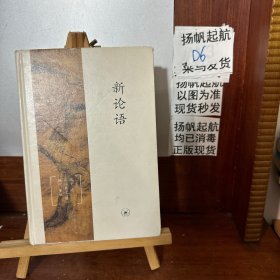 新论语
扬帆起航
D6
架与发货
扬帆起航
以图为准
现货秒发
扬帆起航
均已消毒
正版现货